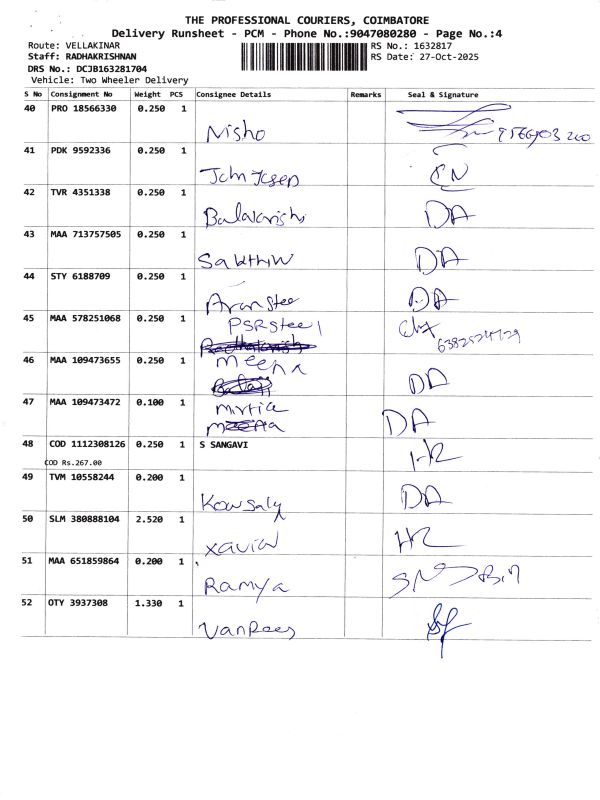 THE PROFESSIONAL COURIERS, COIMBATORE
Delivery Runsheet - PCM - Phone No.:9047080280 - Page No.:4
Route: VELLAKINAR
Staff: RADHAKRISHNAN
DRS No.: DCJB163281704
Vehicle: Two Wheeler Delivery
RS No.: 1632817
RS Date: 27-Oct-2025
S No Consignment No Weight PCS Consignee Details Remarks Seal & Signature
40 PRO 18566330 0.250 1
Nisho
41 PDK 9592336 0.250 1
John Josep
42 TVR 4351338 0.250 1
Balakrish DA
43 MAA 713757505 0.250 1
Sakthiv DA
44 STY 6188709 0.250 1
Aran stee DA
45 MAA 578251068 0.250 1
PSR Steel
46 MAA 109473655 0.250 1
meena DA
47 MAA 109473472 0.100 1
DA
48 COD 1112308126 0.250 1 S SANGAVI
COD Rs.267.00
49 TVM 10558244 0.200 1
Kowsaly DA
50 SLM 380888104 2.520 1
xavier HR
51 MAA 651859864 0.200 1
Ramya
52 OTY 3937308 1.330 1
VanRees